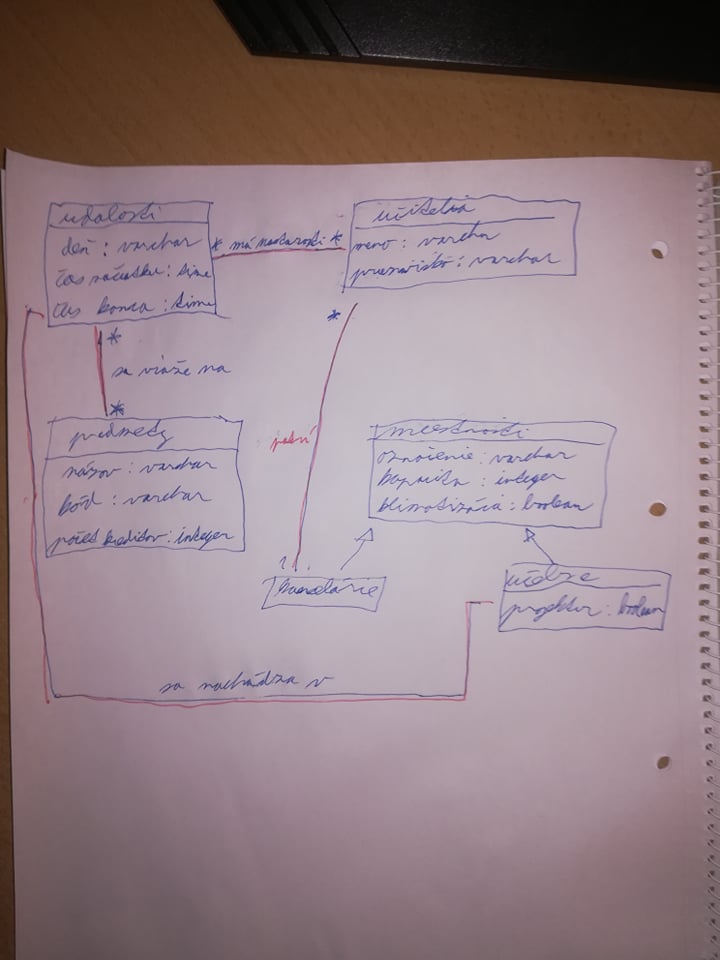 udalosti
deň : varchar
čas začiatku : time
čas konca : time
* má na starosti *
učitelia
meno : varchar
priezvisko : varchar
*
sa viaže na
*
*
patrí
predmety
názov : varchar
kód : varchar
počet kreditov : integer
miestnosti
označenie : varchar
kapacita : integer
klimatizácia : boolean
1
kancelárie
učebne
projektor : boolean
sa nachádza v